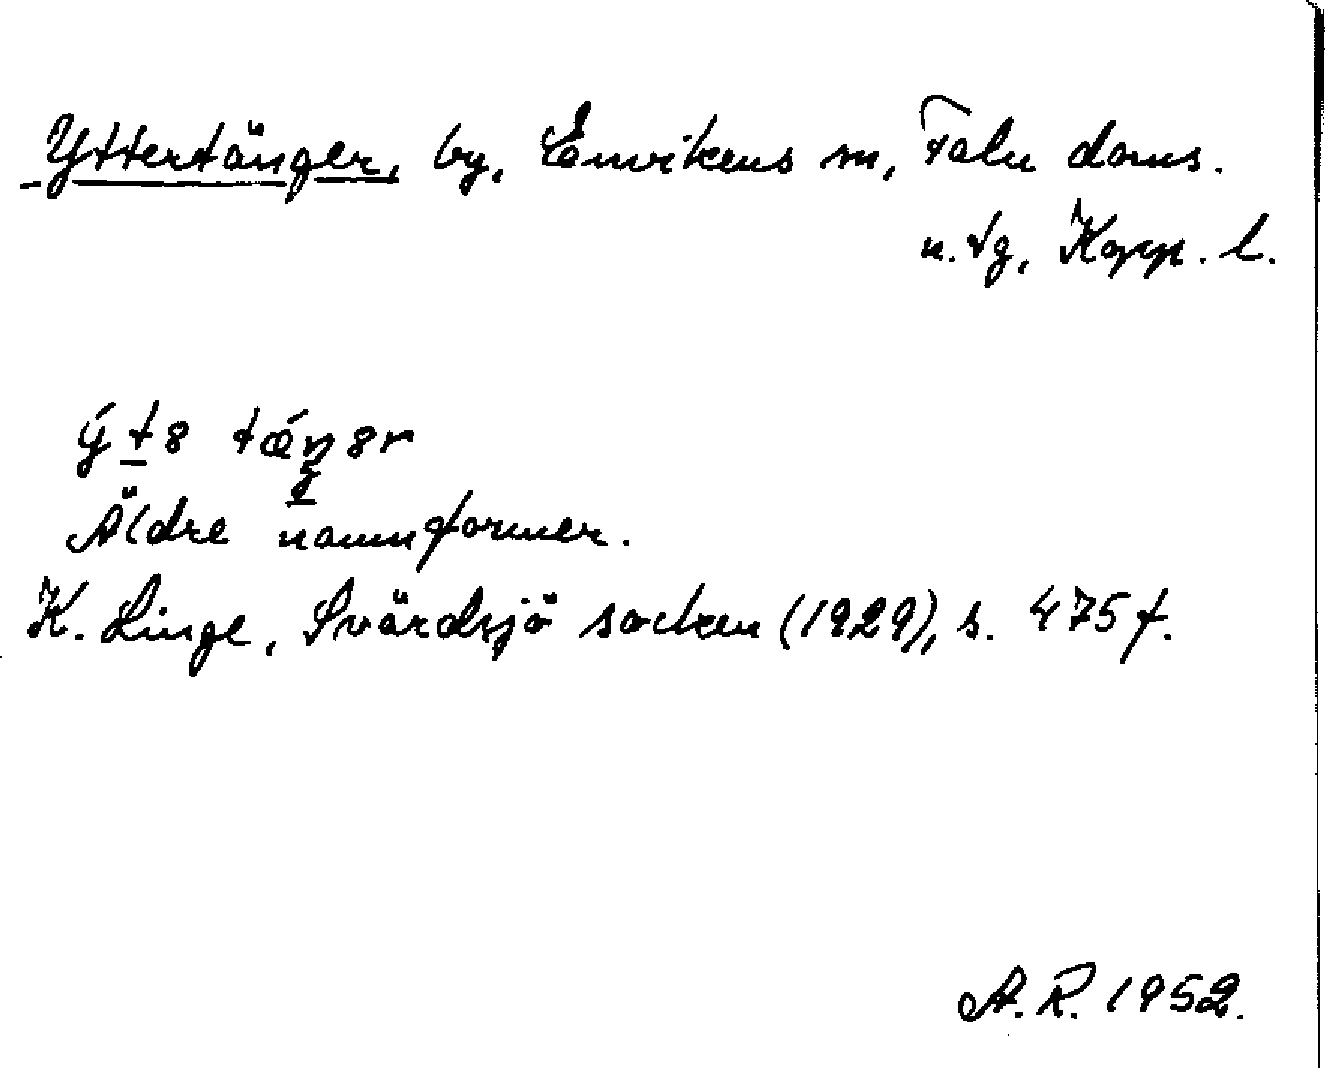 Yttertänger, by, Envikens sn, Falu doms.
n. tg, Kopp. l.
ýt8 tǽŋ8r
Äldre namnformer.
K. Linge, Svärdsjö socken (1929), s. 475 f.
A. R. 1952.